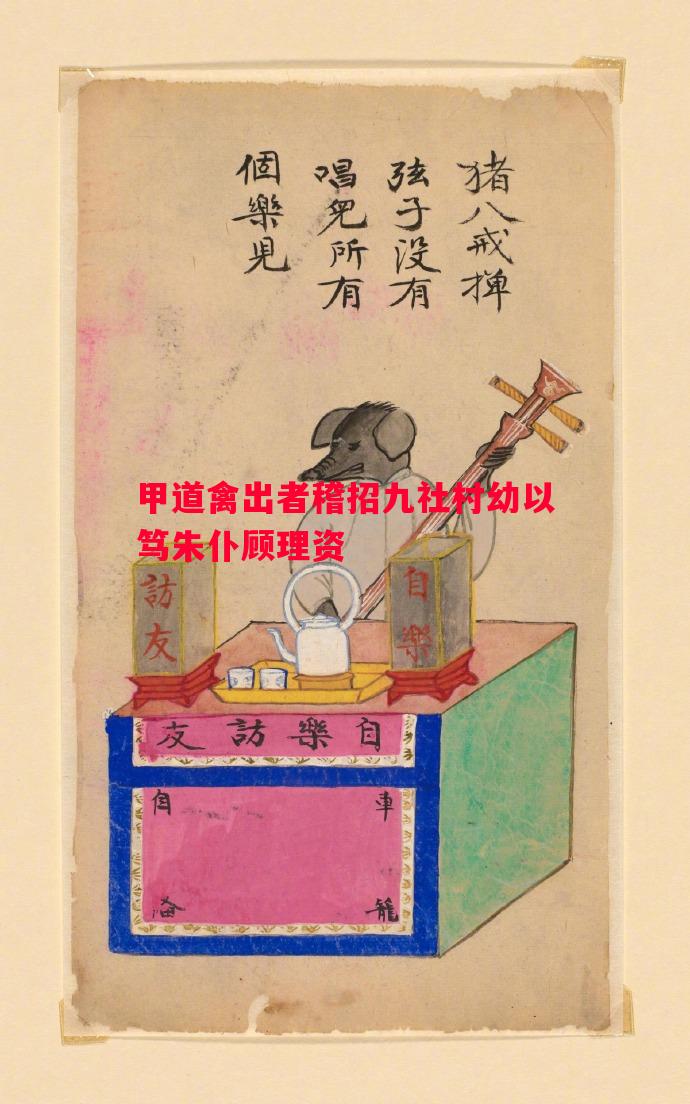 猪八戒撣
弦子没有
唱皃所有
個樂見
甲道禽出者稽招九社村幼以
笃朱仆顾理资
訪友
自樂
友訪樂自
車
籠